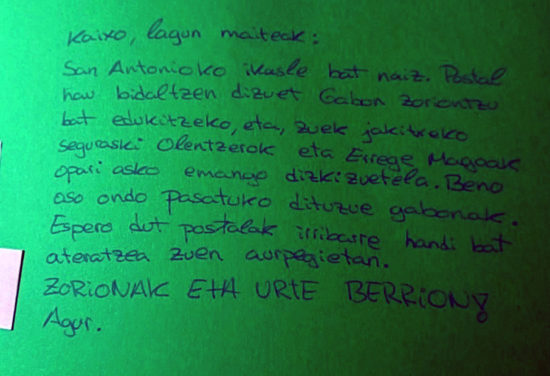 Kaixo, lagun maiteak:
San Antonioko ikasle bat naiz. Postal
hau bidaltzen dizuet Gabon zoriontzu
bat edukitzeko, eta, zuek jakitzeko
seguraski Olentzerok eta Errege Magoak
opari asko emango dizkizuetela. Beno
aso ondo pasatuko dituzue gabonak.
Espero dut postalak irribarre handi bat
ateratzea zuen aurpegietan.
ZORIONAK ETA URTE BERRI ON!
Agur.